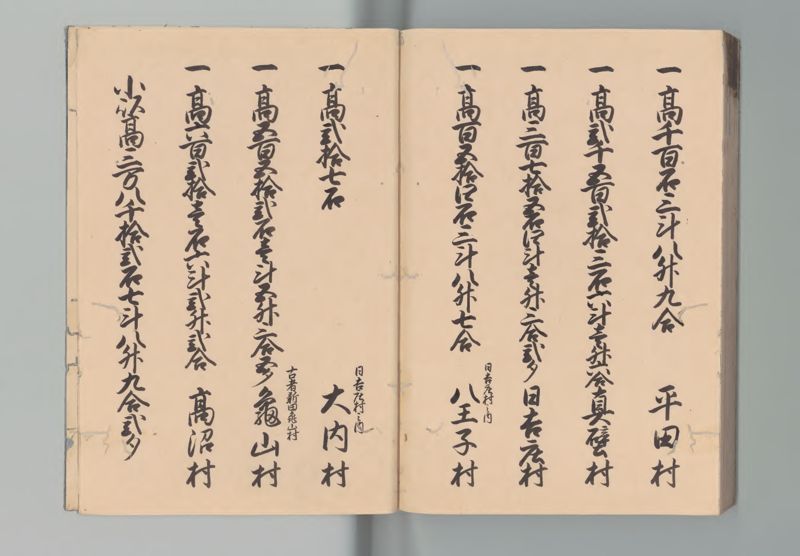 一 高千百石三斗八升九合 平田村
一 高弐千五百弐拾三石六斗壱升八合 真壁村
一 高三百七拾五石四斗壱升三合弐夕 日吉庄村
日吉庄村之内
一 高百五拾四石三斗八升七合 八王子村
日吉庄村之内
一 高弐拾七石 大内村
古者新田亀山村
一 高五百五拾弐石壱斗五升六合五夕 亀山村
一 高六百弐拾壱石六斗弐升弐合 高沼村
小以高三万八千拾弐石七斗八升九合弐夕